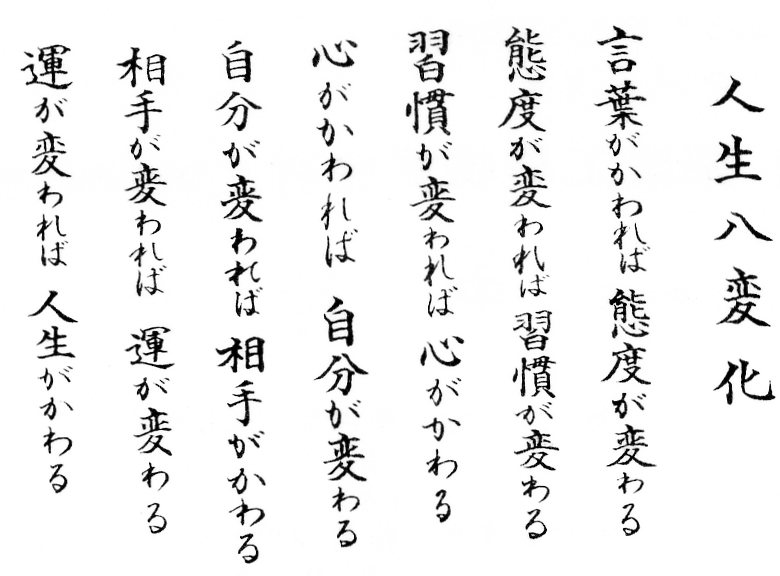 人生八変化
言葉がかわれば 態度が変わる
態度が変われば 習慣が変わる
習慣が変われば 心がかわる
心がかわれば 自分が変わる
自分が変われば 相手がかわる
相手が変われば 運が変わる
運が変われば 人生がかわる